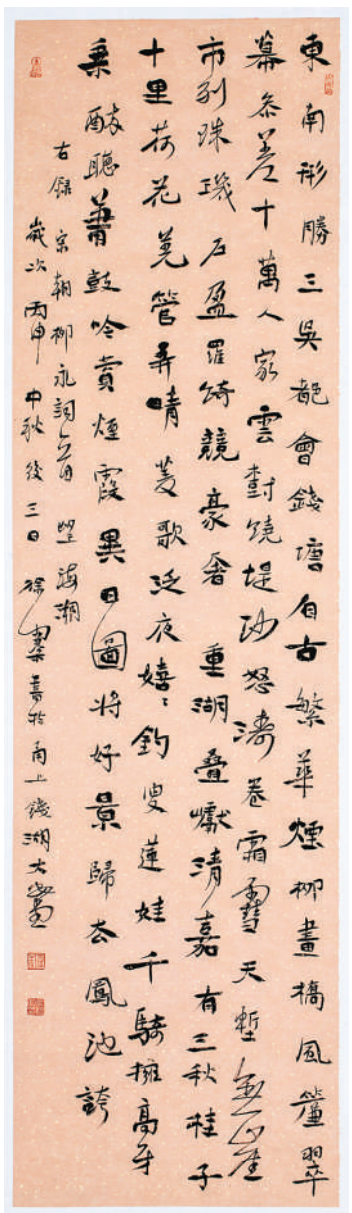 東南形勝三吳都會錢塘自古繁華煙柳畫橋風簾翠
幕參差十萬人家雲樹繞堤沙怒濤卷霜雪天塹無涯
市列珠璣戶盈羅綺競豪奢重湖疊巘清嘉有三秋桂子
十里荷花羌管弄晴菱歌泛夜嬉〻釣叟蓮娃千騎擁高牙
乘醉聽簫鼓吟賞煙霞異日圖將好景歸去鳳池誇
右錄宋朝柳永詞一首望海潮
歲次丙申中秋後三日徐書於甬上錢湖大